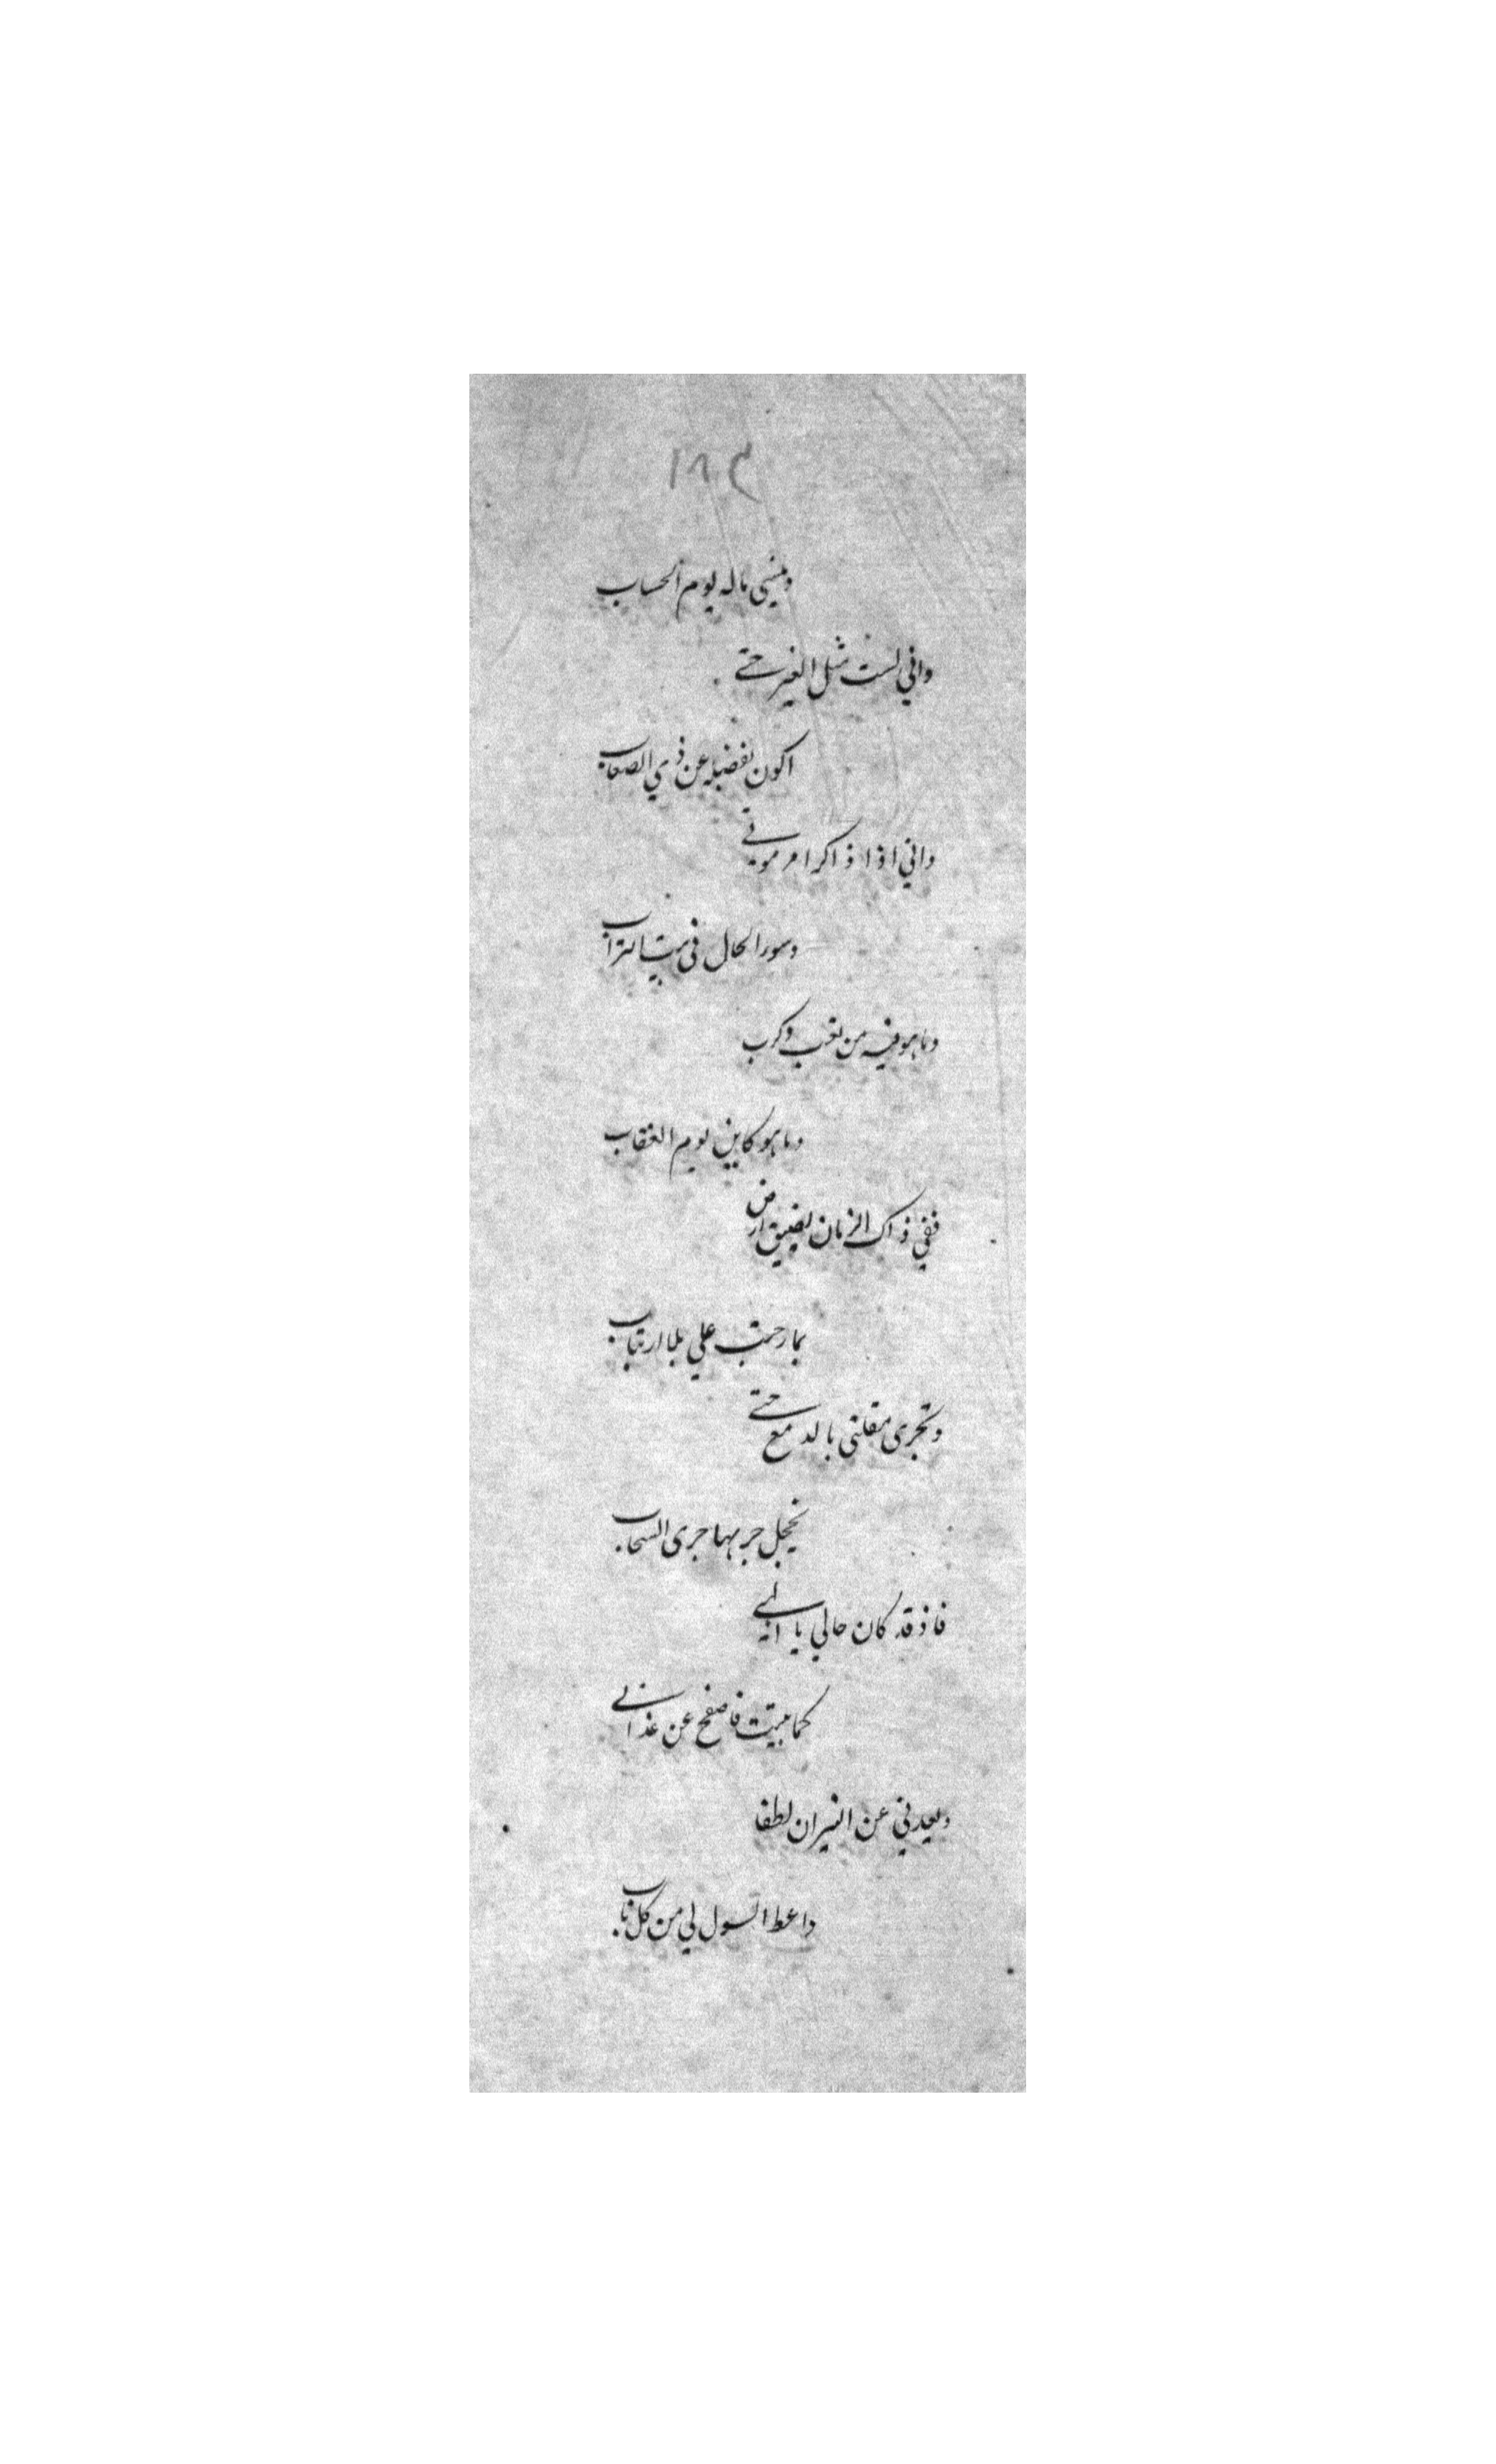 ١٨٣
وينسى ماله يوم الحساب
واني لست مثل الغير حتى
اكون بفضله عن ذي الصعاب
واني اذا اذاكر امر موتي
وسور الحال في بيت التراب
وما هو فيه من تعب وكرب
وما هو كاين يوم العقاب
ففي ذاك الزمان يضيق ارض
بما رحبت علي بلا ارتياب
وتجرى مقلتي بالدمع حتى
يخجل جريها جرى السحاب
فاذ قد كان حالي يا الهي
كما بينت فاصفح عن عذابي
وبعدني عن النيران لطفا
واعط السول لي من كل باب